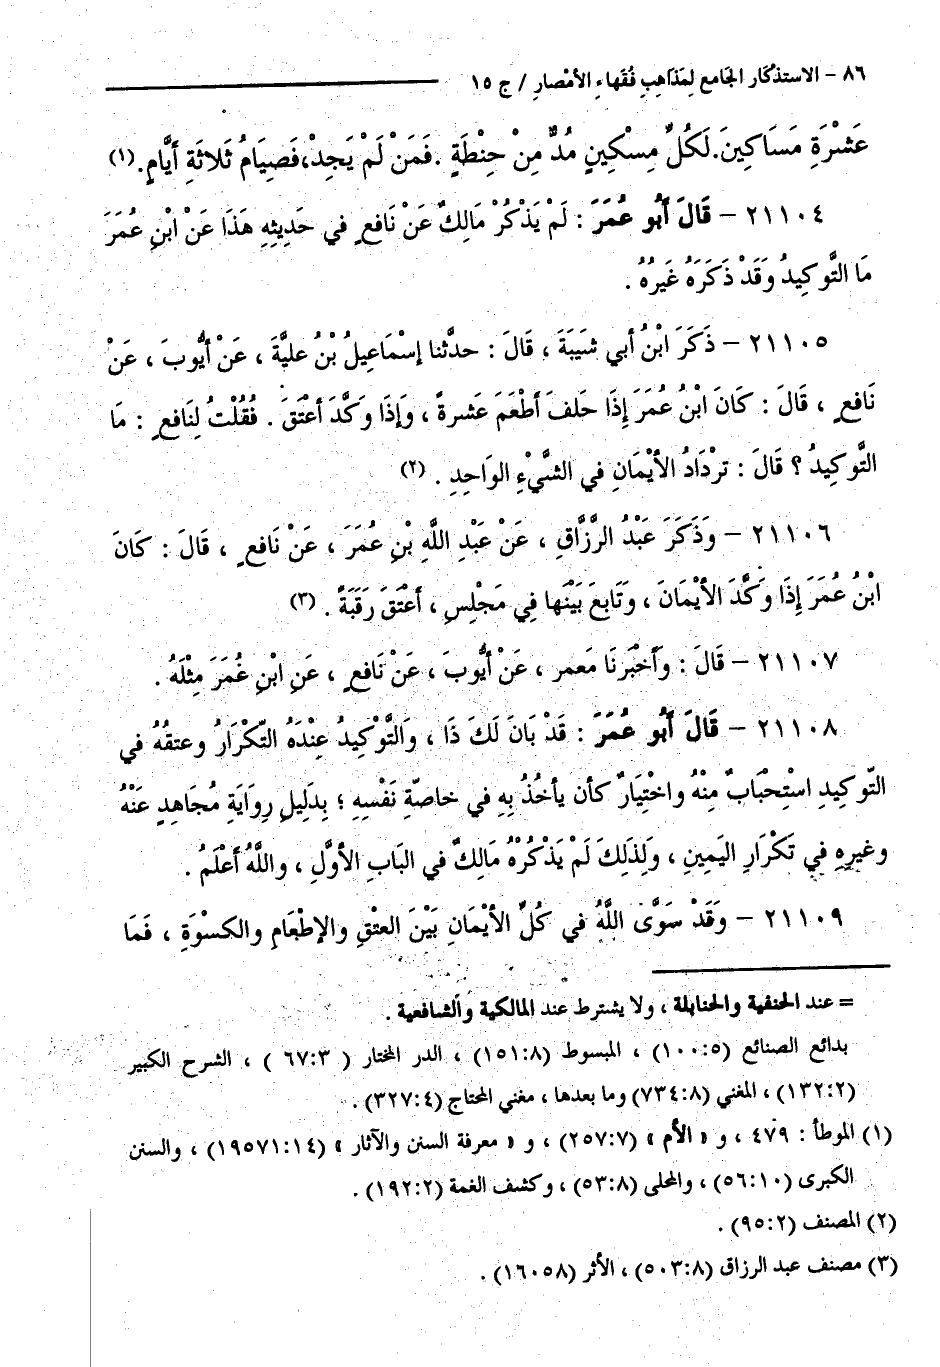 ٨٦ – الاستذكار الجَامع لِمَذَاهِبِ فُقَهاءِ الأمْصارِ / ج ١٥
عَشْرَةِ مَسَاكِينَ.لَكُلِّ مِسْكِينٍ مُدٌّ مِنْ حِنْطَةٍ .فَمَنْ لَمْ يَجِدْ،فَصِيَامُ ثَلاثَةِ أَيَّامٍ.(١)
٢١١٠٤ – قَالَ أَبُو عُمَرَ : لَمْ يَذْكُرْ مَالِكٌ عَنْ نَافعٍ في حَدِيثِهِ هَذَا عَنْ ابْنِ عُمَرَ
مَا التَّوكِيدُ وَقَدْ ذَكَرَهُ غَيرُهُ .
٢١١٠٥ – ذَكَرَ ابْنُ أبي شَيَبَةَ ، قَالَ : حدَّثنا إسْمَاعِيلُ بْنُ عليَّةَ ، عَنْ أيُّوبَ ، عَنْ
نَافعٍ ، قَالَ : كَانَ ابْنُ عُمَرَ إِذَا حَلفَ أَطْعَمَ عَشرةً ، وَإذَا وَكَّدَ أعْتَقَ . فُقُلْتُ لِنَافعٍ : مَا
التَّوكِيدُ ؟ قَالَ : ترْدَادُ الأيْمَانِ في الشَّيْءِ الوَاحِدِ . (٢)
٢١١٠٦ – وَذَكَرَ عَبْدُ الرَّزَّاقِ ، عَنْ عَبْدِ اللَّهِ بْنِ عُمَرَ ، عَنْ نَافعٍ ، قَالَ : كَانَ
ابْنُ عُمَرَ إِذَا وَكَّدَ الأيْمَانَ ، وَتَابعَ بَيْنَها فِي مَجْلِسٍ ، أعْتَقَ رَقَبَةً . (٣)
٢١١٠٧ – قَالَ : وَأخْبَرنَا مَعمر ، عَنْ أيُّوبَ ، عَنْ نَافعٍ ، عَنِ ابْنِ عُمَرَ مِثْلَهُ .
٢١١٠٨ – قَالَ أَبُو عُمَرَ : قَدْ بَانَ لَكَ ذَا ، وَالتَّوْكِيدُ عِنْدَهُ التّكْرَارُ وعتقُهُ في
التّوكِيدِ اسْتِحْبَابٌ مِنْهُ واخْتِيَارٌ كأن يأخُذُ بِهِ في خاصّةِ نَفْسِهِ ؛ بِدَلِيلِ رِوَايَةِ مُجَاهِدٍ عَنْهُ
وغيرِهِ في تَكْرَارِ اليَمِينِ ، وَلِذَلِكَ لَمْ يَذْكُرْهُ مَالِكٌ في البَابِ الأوَّلِ ، واللَّهُ أعْلَمُ .
٢١١٠٩ – وَقَدْ سَوَّى اللَّهُ في كُلِّ الأيْمَانِ بَيْنَ العتْقِ والإطْعَامِ والكسْوَةِ ، فَمَا
= عند الحنفية والحنابلة ، ولا يشترط عند المالكية والشافعية .
بدائع الصنائع (٥:١٠٠) ، المبسوط (٨:١٥١) ، الدر المختار ( ٣:٦٧ ) ، الشرح الكبير
(٢:١٣٢) ، المغني (٨:٧٣٤) وما بعدها ، مغني المحتاج (٤:٣٢٧) .
(١) الموطأ : ٤٧٩ ، و « الأم » (٧:٢٥٧) ، و « معرفة السنن والآثار » (١٤:١٩٥٧١) ، والسنن
الكبرى (١٠:٥٦) ، والمحلى (٨:٥٣) ، وكشف الغمة (٢:١٩٢) .
(٢) المصنف (٢:٩٥) .
(٣) مصنف عبد الرزاق (٨:٥٠٣) ، الأثر (١٦٠٥٨) .